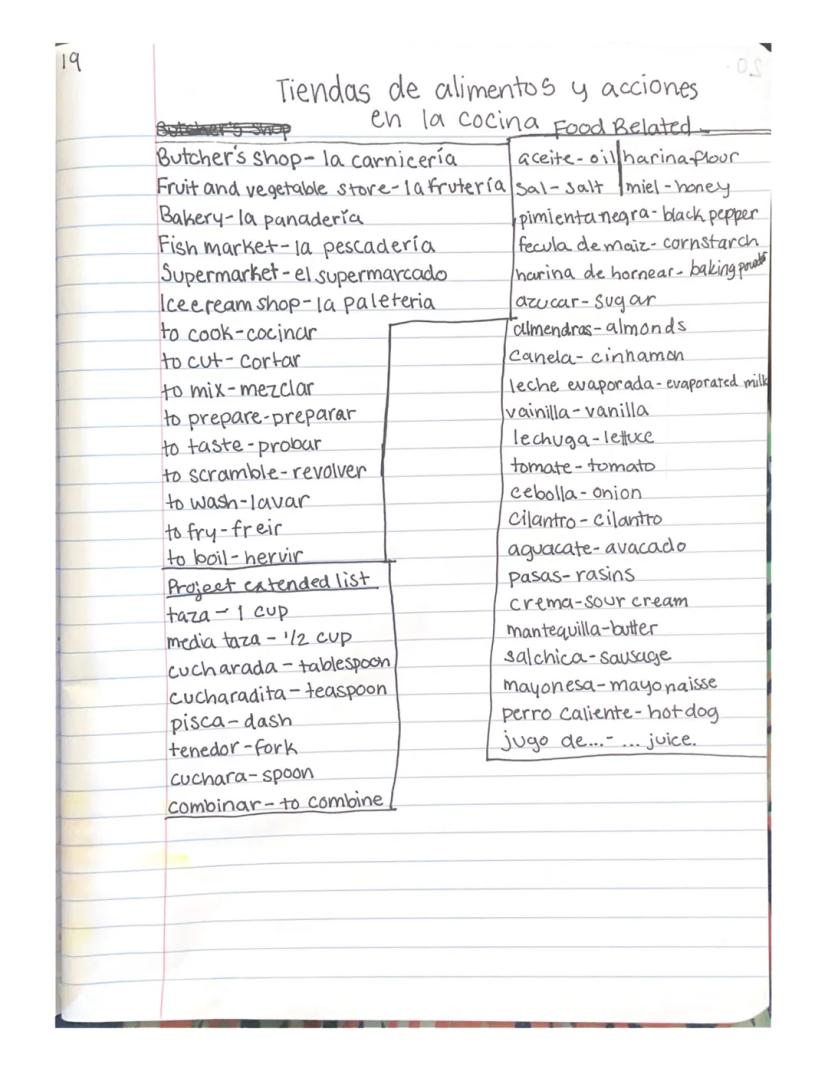 19
20.
Tiendas de alimentos y acciones
en la cocina
Butcher's shop
Butcher's shop- la carnicería
Fruit and vegetable store- la frutería
Bakery- la panadería
Fish market- la pescadería
Supermarket- el supermarcado
Icecream shop- la paleteria
to cook-cocinar
to cut- cortar
to mix-mezclar
to prepare-preparar
to taste-probar
to scramble-revolver
to wash-lavar
to fry-freir
to boil-hervir
Project extended list
taza - 1 cup
media taza - 1/2 cup
cucharada - tablespoon
cucharadita - teaspoon
pisca- dash
tenedor-fork
cuchara- spoon
combinar- to combine
Food Related
aceite- oil harina-flour
sal- salt miel-honey
pimienta negra- black pepper
fecula de maiz- cornstarch
harina de hornear- baking powder
azucar- sugar
almendras-almonds
canela- cinnamon
leche evaporada- evaporated milk
vainilla- vanilla
lechuga-lettuce
tomate- tomato
cebolla- onion
cilantro- cilantro
aguacate- avacado
pasas- rasins
crema-sour cream
mantequilla-butter
salchica-sausage
mayonesa-mayonaisse
perro caliente- hotdog
jugo de...- ... juice.